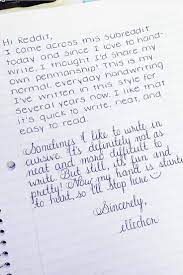 Hi Reddit,
I came across this subreddit
today and since I love to hand-
write, I thought I'd share my
own penmanship! This is my
normal, everyday handwriting
I've written in this style for
several years now. I like that
it's quick to write, neat, and
easy to read.
Sometimes I like to write in
cursive. It's definitely not as
neat and more difficult to
write. But still, it's fun and
pretty! Now my hand is startin
to hurt, so I'll stop here
Sincerely,